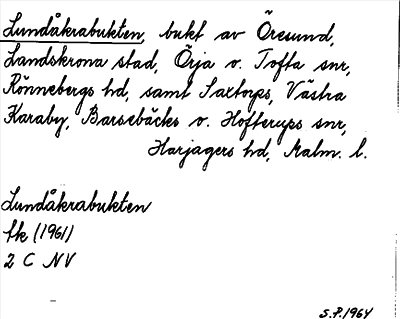 Lundåkrabukten, bukt av Öresund,
Landskrona stad, Örja o. Tofta snr,
Rönnebergs hd, samt Saxtorps, Västra
Karaby, Barsebäcks o. Hofterups snr,
Harjagers hd, Malm. l.
Lundåkrabukten
fk (1961)
2 C NV
S.P. 1964